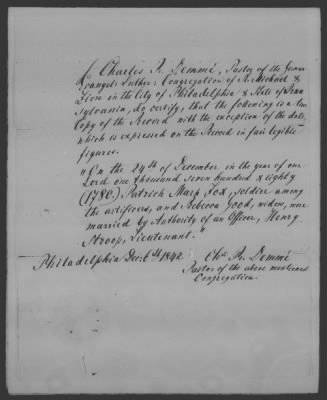 I, Charles R. Demmé, Pastor of the German
Evangel: Luther: Congregation of St. Michael &
Zion in the City of Philadelphia & State of Penn
sylvania, do certify, that the following is a true
Copy of the Record with the exception of the date,
which is expressed on the Record in fair legible
figures.
"On the 24th of December in the year of our
Lord one thousand seven hundred & eighty
(1780.) Patrick Marp Fox, soldier among
the artificers, and Rebecca Good, widow, were
married by Authority of an Officer, Henry
Stroop, Lieutenant."
Philadelphia Dec. 6th 1842. Chs R. Demmé
Pastor of the above mentioned
Congregation.